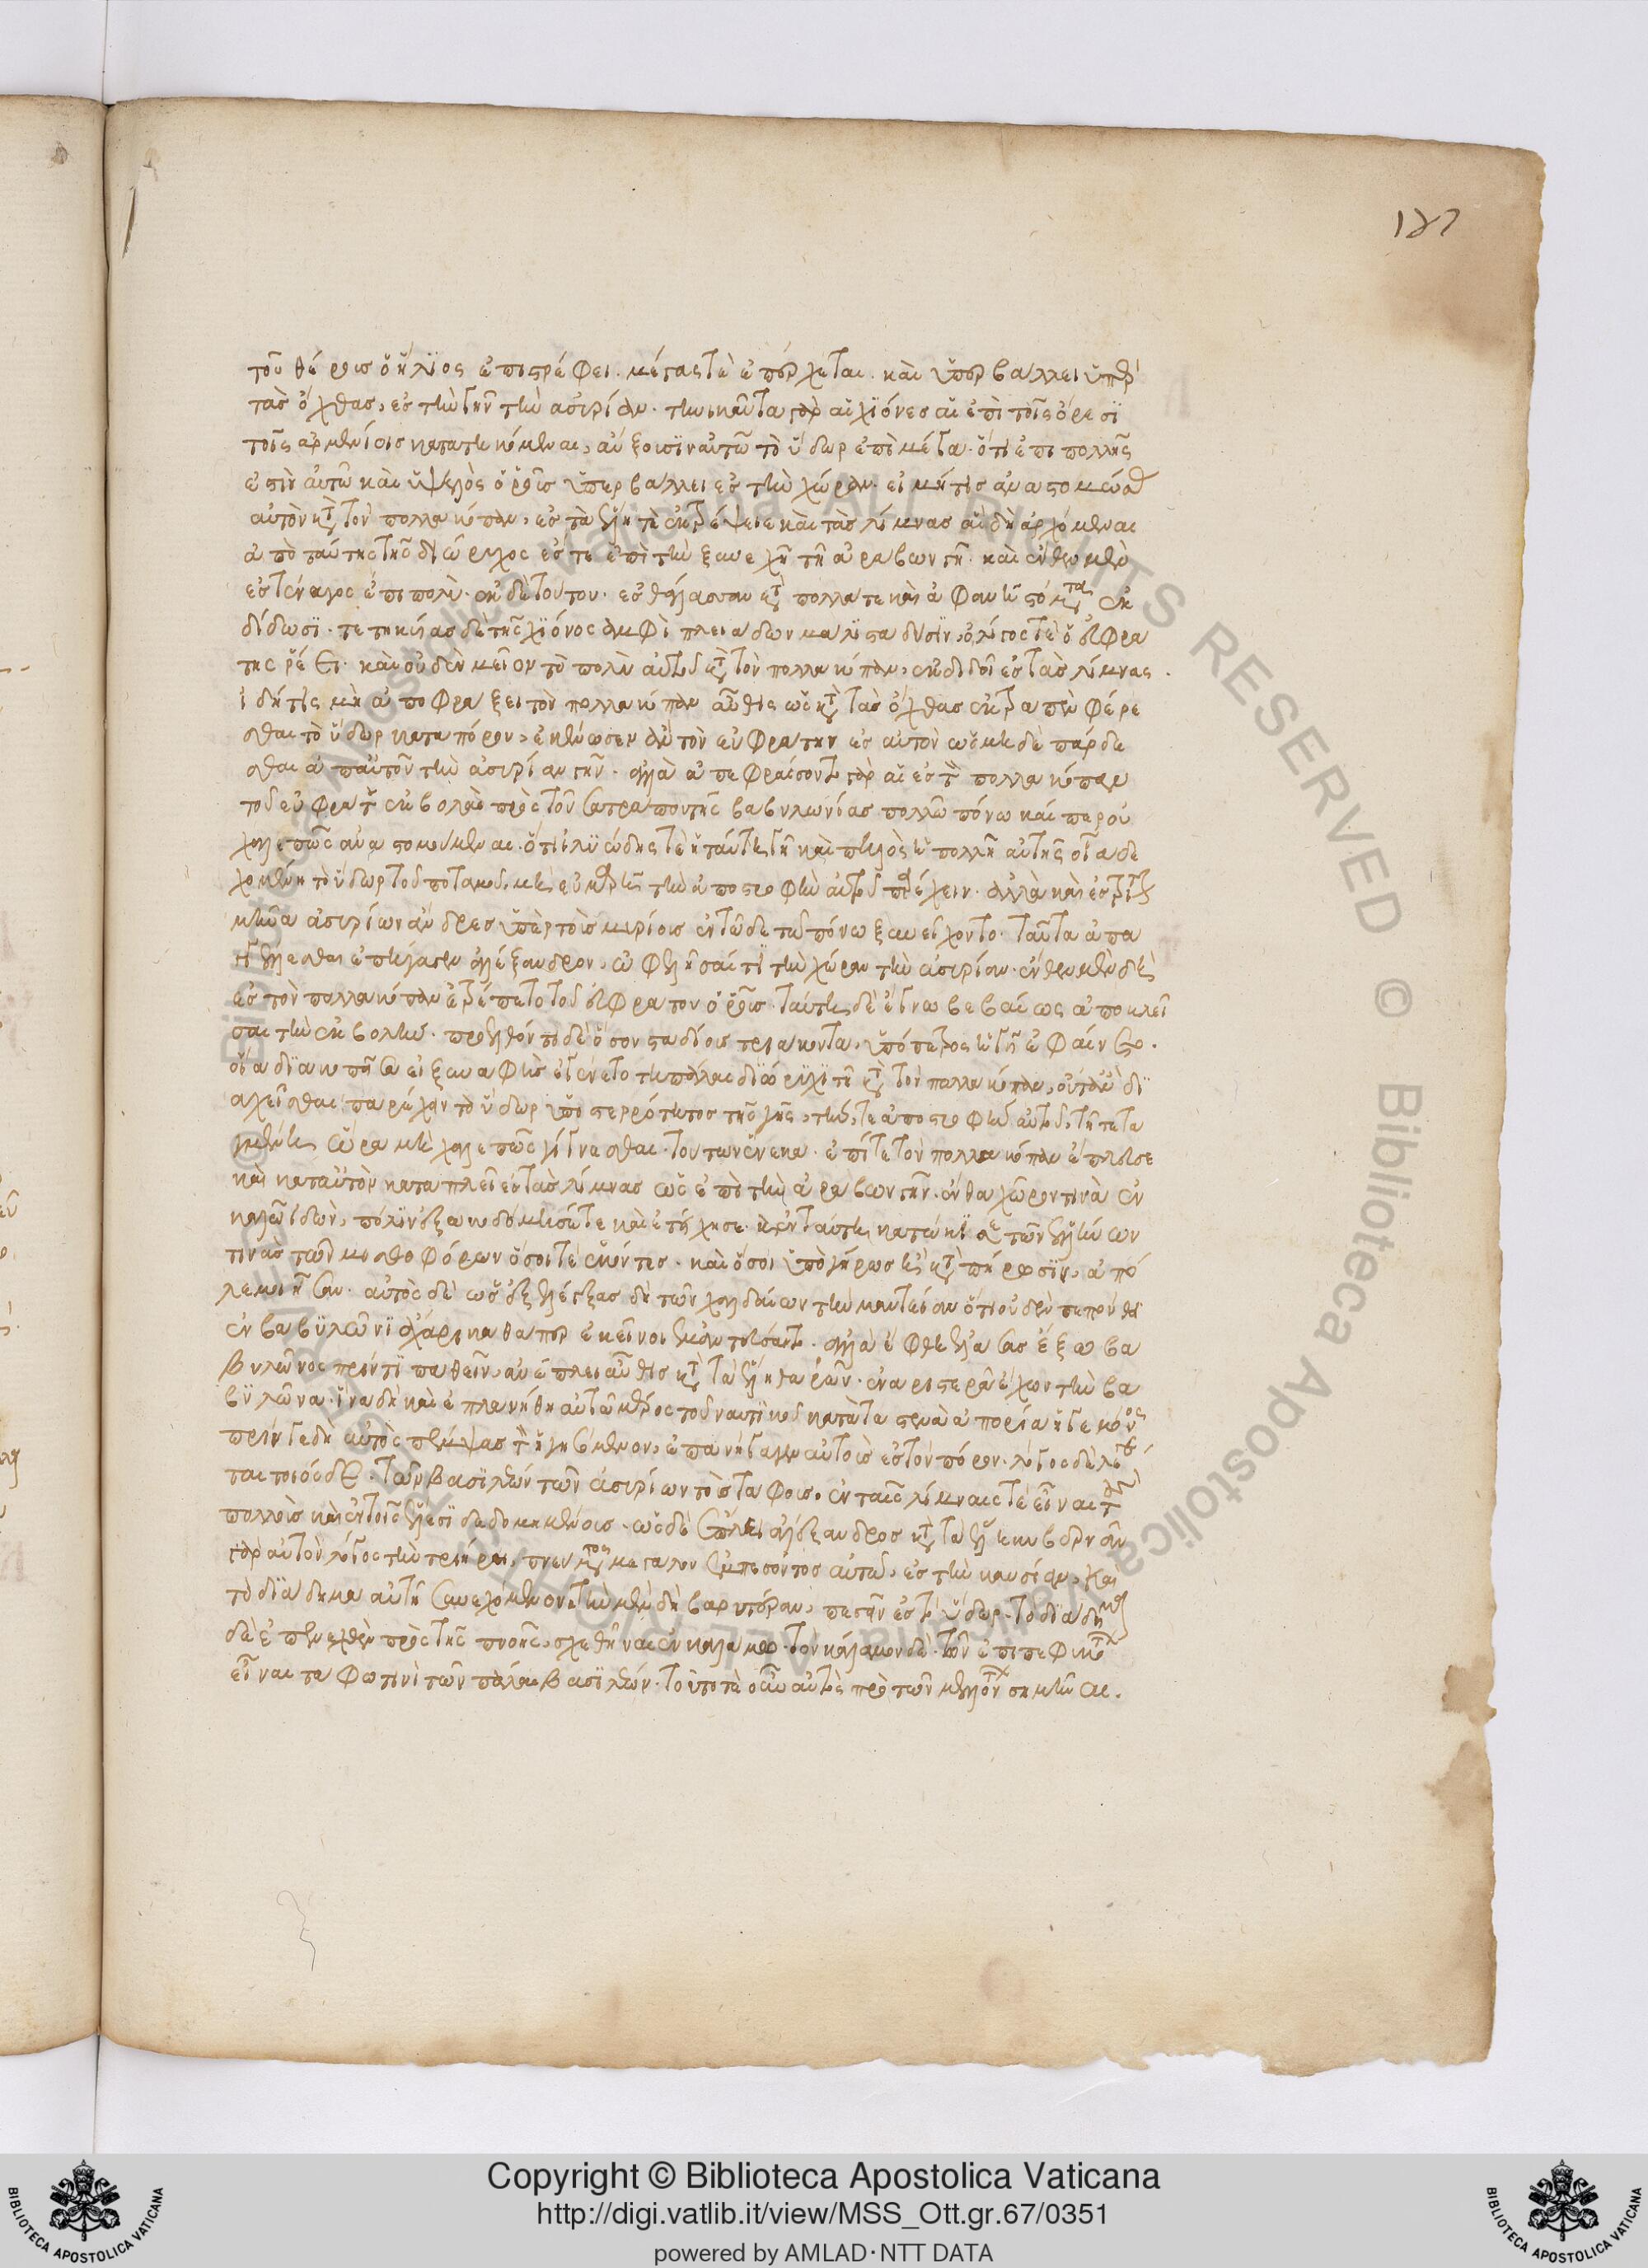 τοῦ θέρους ὁ ἥλιος ἐπιστρέφει. μέγας τὲ ἐπέρχεται. καὶ ὑπερβάλλει ὑπὲρ
τὰσ ὄχθας, ἐσ τὴν γῆν τὴν ἀσυρίαν. τηνικαῦτα γὰρ αἱ χϊόνεσ αἱ ἐπὶ τοῖς ὄρεσϊ
τοῖς ἀρμενίοισ κατατηκόμεναι, αὔξουσϊν αὐτῶ τὸ ὕδωρ ἐπὶ μέγα. ὅτι ἐπι πολλῆς
ἐστὶν αὐτῶ καὶ ὑψηλὸς ὁ ῥοῦσ ὑπερβάλλει ἐσ τὴν χώραν. εἰ μή τισ ἀναστομώσας
αὐτὸν κατὰ τὸν πολλακόπαν, ἐσ τὰ ἕλη τὲ ἐκτρέψειε καὶ τὰσ λίμνασ αἳ δὴ ἀρχόμεναι
ἀπὸ ταύτης τῆς διώρυχος ἔσ τε ἐπὶ τὴν ξυνεχῆ τῆ ἀραβων γῆ. καὶ ἔνθεν μὲν
ἐς τέναγος ἐπι πολὺ. ἐκ δὲ τούτου. ἐσ θάλασσαν κατὰ πολλά τε καὶ ἀφανῆ στόματα ἐκ
δίδωσϊ. τετηκυίασ δὲ τῆς χϊόνος ἀμφὶ πλειαδων μαλιστα δύσϊν, ὀλίγος τὲ ὁ εὐφρα
της ῥέει. καὶ οὐδὲν μεῖον τὸ πολὺ αὐτοῦ κατὰ τὸν πολλακόπαν, ἐκδιδοῖ ἐσ τὰσ λίμνας.
ἰ δή τις μὴ ἀποφραξει τὸν πολλακόπαν αὖθις ὡς κατὰ τὰσ ὄχθασ ἐκτραπὲν φέρε
σθαι τὸ ὕδωρ κατα πόρον, ἐκένωσεν ἂν τὸν εὐφρατην ἐσ αὐτὸν ὡς μηδὲ πάρδε
σθαι ἀπαὐτοῦ τὴν ἀσυρίαν γῆν. ἀλλὰ ἀπεφράσοντο γὰρ αἱ ἐσ τὸν πολλακόπαν
τοῦ εὐφράτου ἐκβολὰς πρὸς τοῦ σατράπου τῆς βαβυλωνίασ πολλῶ πόνω καί περ οὐ
χαλεπῶς ἀναστομούμεναι. ὅτι ἰλυώδης τὲ ἡ ταύτη γῆ καὶ πηλὸς ἡ πολλὴ αὐτῆς οἷα δε
χομένη τὸ ὕδωρ τοῦ ποταμοῦ, μὴ εὐμαρῆ τὴν ἀποστροφὴν αὐτοῦ παρέχειν. ἀλλὰ καὶ ἐς τρίτον
μῆνα ἀσυρίων ἄνδρεσ ὑπὲρ τοὺσ μυρίουσ ἐν τῶδε τῶ πόνω ξυνείχοντο. ταῦτα ἀπα
γγελθέντα ἐπήγαγεν ἀλέξανδρον, ὠφελῆσαί τϊ τὴν χώραν τὴν ἀσυρίαν. ἔνθεν μὲν δὴ
ἐσ τὸν πολλακόπαν ἐτρέπετο τοῦ εὐφράτου ὁ ῥοῦσ. ταύτη δὲ ἔγνω βεβαίως ἀποκλεῖ
σαι τὴν ἐκβολήν. προελθόντι δὲ ὅσον σταδίους τριάκοντα, ὑπόπετρος ἡ γῆ ἐφαίνετο.
οἵα διακοπεῖσα εἰ ξυναφὴσ ἐγένετο τῆ πάλαι διώρυχϊ τῆ κατὰ τὸν παλλακόπαν, οὔτ ἂν δϊ
αχεῖσθαι παρέχειν τὸ ὕδωρ ὑπὸ στερρότητος τῆς γῆς, τήν τε ἀποστροφὴν αὐτοῦ τῆ τετα
γμένη ὥρα μὴ χαλεπῶς γίγνεσθαι. τούτων ἕνεκα. ἐπί τε τὸν πολλακόπαν ἔπλευσε
καὶ καταὐτὸν καταπλεῖ ἐσ τὰσ λίμνασ ὡς ἐπὶ τὴν ἀράβων γῆν. ἔνθα χῶρόν τινα ἐν
καλῶ ἰδὼν, πόλϊν ἐξωκοδόμησέ τε καὶ ἐτείχησε. καὶ ἐν ταύτη κατώκϊσε τῶν ἑλλήνων
τινὰσ τῶν μισθοφόρων ὅσοι τὲ ἑκόντεσ. καὶ ὅσοι ὑπὸ γήρωσ ἢ κατὰ πήρωσϊν, ἀπό
λεμοι ἦσαν. αὐτὸς δὲ ὡς ἐξελέγξασ δὴ τῶν χαλδαίων τὴν μαντείαν ὅτι οὐδὲν πεπόνθει
ἐν βαβυλῶνϊ ἄχαρι καθαπερ ἐκεῖνοι ἐμαντεύσαντο. ἀλλὰ ἔφθη ἐλάσασ ἔξω βα
βυλῶνος πρίν τι παθεῖν, ἀνέπλει αὖθισ κατὰ τὰ ἕλη θαρρῶν. ἐν ἀριστερᾶ ἔχων τὴν βα
βυλῶνα. ἵνα δὴ καὶ ἐπλανήθη αὐτῶ μέρος τοῦ ναυτϊκοῦ κατὰ τὰ στενὰ ἀπορία ἡγεμόνος
πρίν γε δὴ αὐτὸς πέμψασ τὸν ἡγησόμενον, ἐπανήγαγεν αὐτοὺσ ἐσ τὸν πόρον. λόγος δὲ λέγε
ται τοιόσδε. τῶν βασϊλέων τῶν ἀσυρίων τοὺσ τάφουσ. ἐν ταῖς λίμναις τὲ εἶναι τοὺς
πολλοὺσ καὶ ἐν τοῖς ἕλεσϊ δεδομημένουσ. ὡς δὲ ἔπλει ἀλέξανδροσ κατὰ τὰ ἕλη κυβερνᾶν
γὰρ αὐτὸν λόγος τὴν τριήρη, πνεύματος μεγάλου ἐμπεσόντοσ αὐτῶ, ἐσ τὴν καυσίαν, καὶ
τὸ διάδημα αὐτῆ συνεχόμενον, τὴν μὲν δὴ βαρυτέραν, πεσεῖν ἐσ τὸ ὕδωρ. τὸ διάδημα
δὲ ἀπενεχθὲν πρὸς τῆς πνοῆς, σχεθῆναι ἐν καλάμω. τὸν κάλαμον δὲ. τῶν ἐπιπεφυκότων
εἶναι ταφωτινὶ τῶν πάλαι βασϊλέων. τοῦτό τὲ οὖν αὐτὸς πρὸ τῶν μελλόντων σημῆναι.